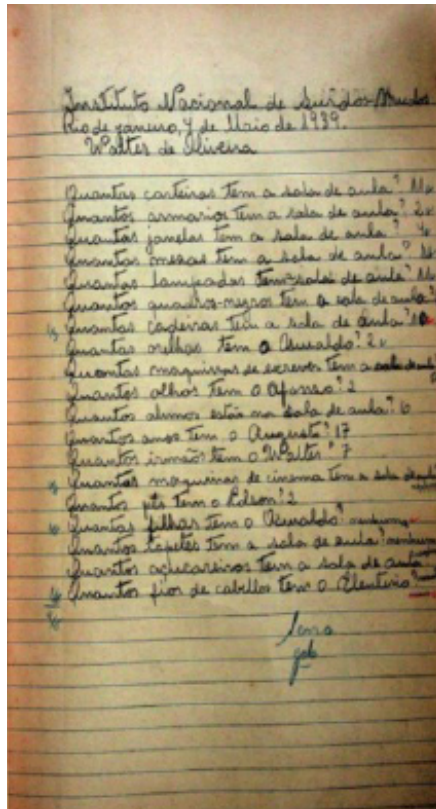 Instituto Nacional de Surdos-Mudos
Rio de janeiro, 4 de Maio de 1939.
Walter de Oliveira
Quantas carteiras tem a sala de aula?
Quantos armarios tem a sala de aula? 2
Quantas janelas tem a sala de aula?
Quantas mezas tem a sala de aula?
Quantas lampadas tem sala de aula?
Quantos quadros-negros tem a sala de aula?
Quantas cadeiras tem a sala de aula?
Quantas orelhas tem o Oswaldo? 2
Quantas maquinas de escrever tem a sala de aula
Quantos olhos tem o Afonso? 2
Quantos alunos estão na sala de aula? 6
Quantos anos tem o Augusto? 17
Quantos irmãos tem o Walter? 7
Quantas maquinas de cinema tem a sala de aula
Quantos pés tem o Edson? 2
Quantas filhas tem o Oswaldo? nenhuma
Quantos tapetes tem a sala de aula? nenhum
Quantos açucareiros tem a sala de aula
Quantos fios de cabellos tem o Eleuterio?